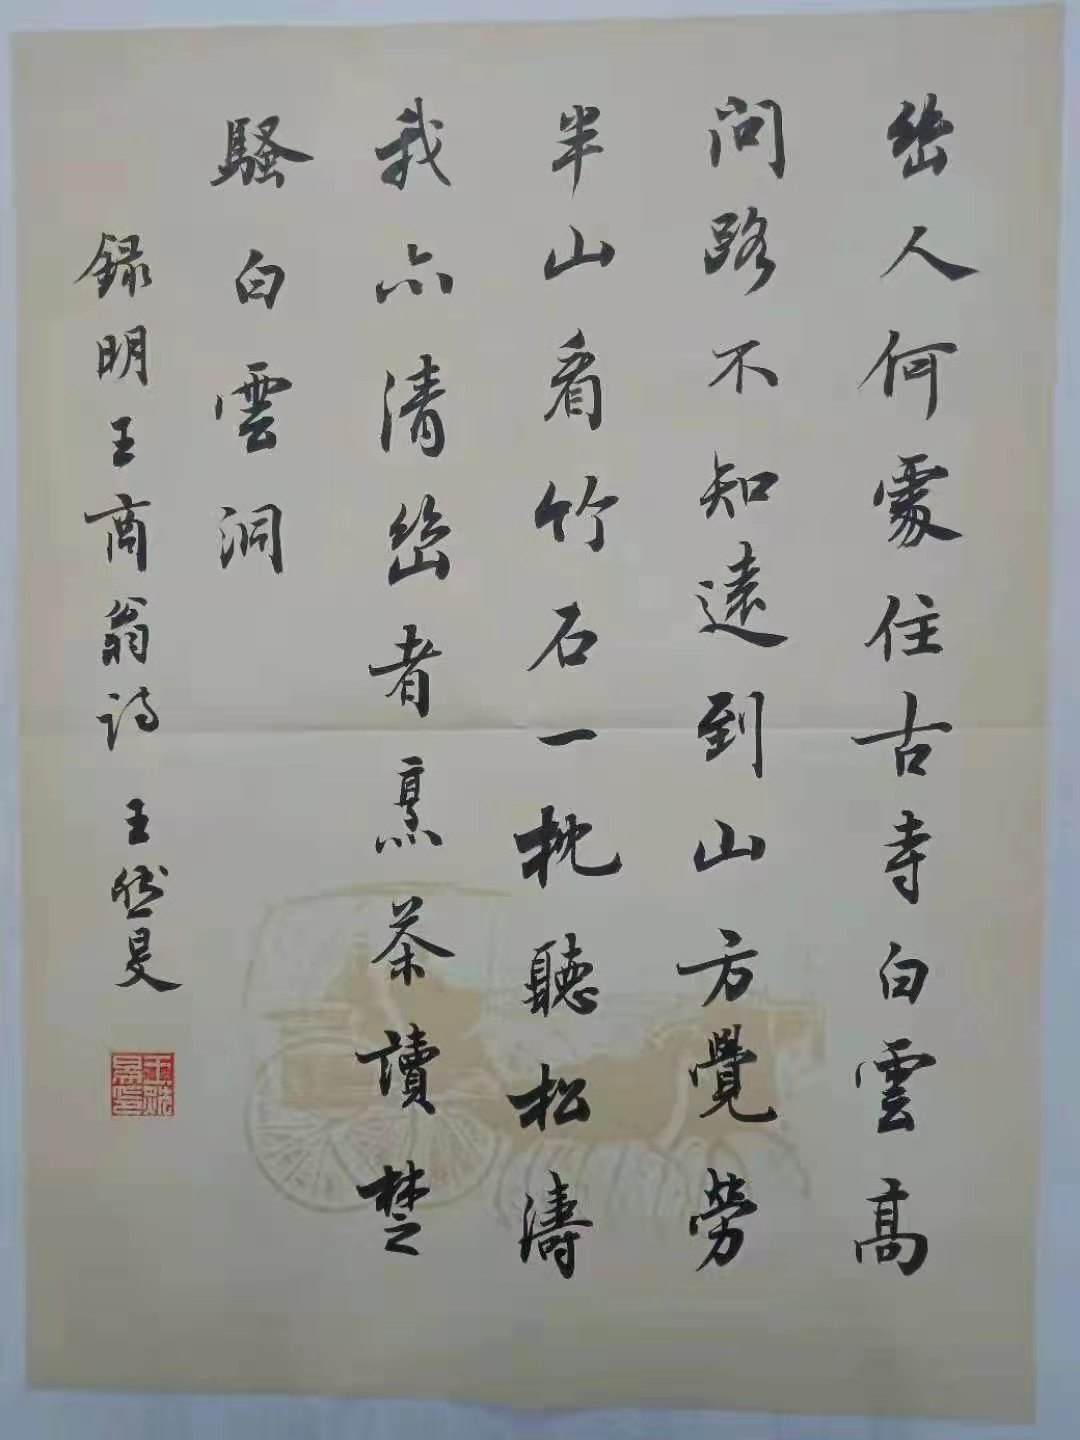 幽人何處住古寺白雲高
問路不知遠到山方覺勞
半山看竹石一枕聽松濤
我亦清幽者烹茶讀楚
騷白雲洞
録明王商翁诗 王